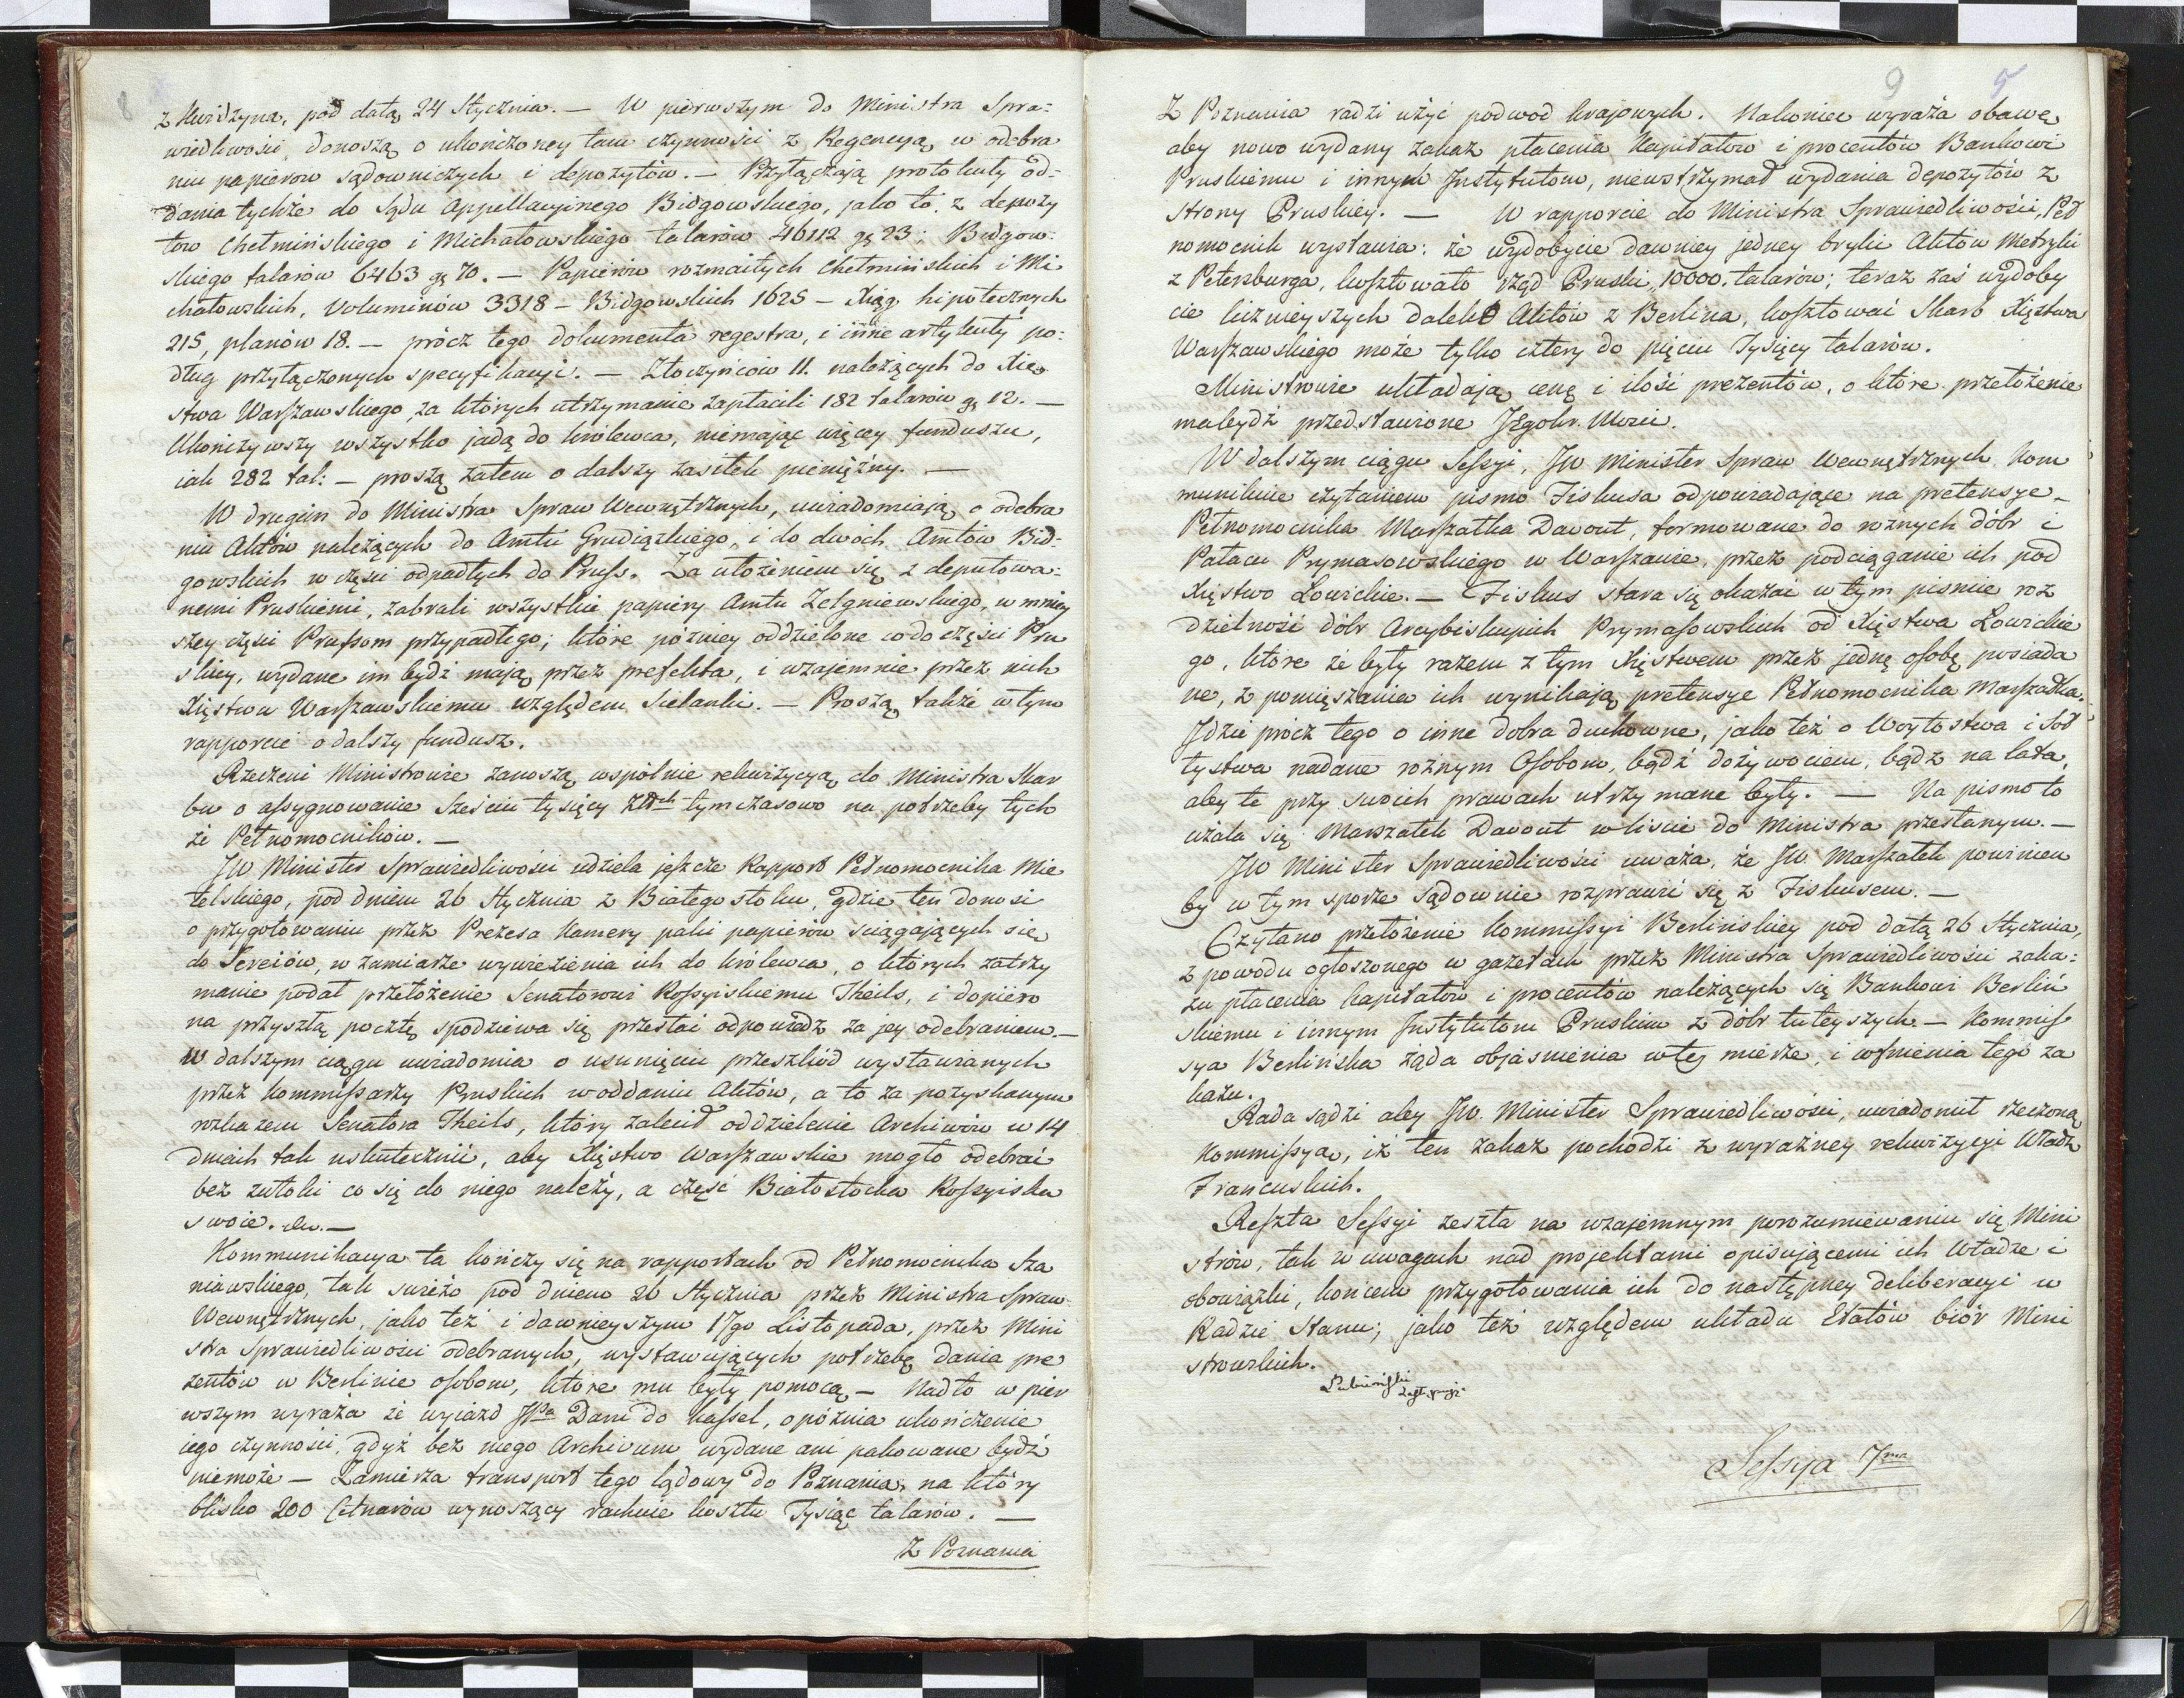 8
z Kwidzyna, pod datą 24 Stycznia. — W pierwszym do Ministra Spra=
wiedliwości, donoszą o ukończoney tam czynności z Regencyą w odebra
niu papierow sądowniczych i depozytów. — Przyłączają protokuły od=
dania tychże do Sądu Appellacyinego Bidgowskiego, jako to: z depozy
tow Chełmińskiego i Michałowskiego talarów 46112 gę 23; Bidgow=
skiego talarów 6463 gę 70. — Papierów rozmaitych Chełmińskich i Mi
chałowskich, Voluminów 3318 — Bidgowskich 1625 — Xiąg hipotecznych
215, planów 18. — prócz tego dokumenta regestra, i inne artykuły po=
dług przyłączonych specyfikacyi. — Złoczyńców 11. należących do Xię
stwa Warszawskiego, za których utrzymanie zapłacili 182 talarów gę 12. —
Ukończywszy wszystko jadą do Królewca, niemając więcey funduszu,
iak 282 tal: — proszą zatem o dalszy zasiłek pieniężny. —
W drugim do Ministra Spraw Wewnętrznych, uwiadomiają o odebra
niu Aktów należących do Amtu Grudiązkiego, i do dwóch Amtów Bid=
gowskich w części odpadłych do Pruss. Za ułożeniem się z deputowa=
nemi Pruskiemi, zabrali wszystkie papiery Amtu Zelgniewskiego, w mniey
szey części Prussom przypadłego; które pozniey oddzielone co do części Pru
skiey, wydane im bydź mają przez prefekta, i wzajemnie przez nich
Xięstwu Warszawskiemu względem Sielanki. — Proszą także w tym
rapporcie o dalszy fundusz.
Rzeczeni Ministrowie zanoszą wspólnie rekwizycyą do Ministra Skar
bu o assygnowanie Sześciu tysięcy Złłch tymczasowo na potrzeby tych
że Pełnomocników. —
JW Minister Sprawiedliwości udziela jeszcze Rapport Pełnomocnika Mie
telskiego, pod dniem 26 Stycznia z Białegostoku, gdzie ten donosi
o przygotowaniu przez Prezesa Kamery paki papierów sciągających się
do Sereiów, w zamiarze wywiezienia ich do Królewca, o których zatrzy
manie podał przełożenie Senatorowi Rossyiskiemu Theils, i dopiero
na przyszłą pocztę spodziewa się przesłać odpowiedz za jey odebraniem. —
W dalszym ciągu uwiadomia o usunięciu przeszkód wystawianych
przez Kommissarzy Pruskich w oddaniu Aktów, a to za pozyskanym
rozkazem Senatora Theils, który zalecił oddzielenie Archiwów w 14
dniach tak uskutecznić, aby Xięstwo Warszawskie mogło odebrać
bez zwłoki co się do niego należy, a część Białostocka Rossyiska
swoie. etc. —
Kommunikacya ta kończy się na rapportach od Pełnomocnika Sza
niawskiego, tak swieżo pod dniem 26 Stycznia przez Ministra Spraw
Wewnętrznych, jako też i dawnieyszym 17go Listopada, przez Mini
stra Sprawiedliwości odebranych, wystawujących potrzebę dania pre
zentów w Berlinie osobom, które mu były pomocą. — Nadto w pier
wszym wyraża że wyiazd JPa Daru do Kassel, opóźnia ukończenie
iego czynności, gdyż bez niego Archivum wydane ani pakowane bydź
niemoże — Zamierza transport tego lądowy do Poznania, na który
blisko 200 Cetnarów wynoszący rachuie kosztu Tysiąc talarów. —
Z Poznania
9 5
Z Poznania radzi użyć podwod krajowych. Nakoniec wyraża obawę,
aby nowo wydany zakaz płacenia Kapitałów i procentów Bankowi
Pruskiemu i innym Instytutom, niewstrzymał wydania depozytów z
strony Pruskiey. — W rapporcie do Ministra Sprawiedliwości, Peł
nomocnik wystawia: że wydobycie dawniey jedney bryki Aktów Metryki
z Petersburga, kosztowało rząd Pruski 10000. talarów; teraz zaś wydoby
cie licznieyszych daleko Aktów z Berlina, kosztować Skarb Xięstwa
Warszawskiego może tylko cztery do pięciu Tysięcy talarów.
Ministrowie układają cenę i ilość prezentów, o które przełożenie
ma bydź przedstawione JEgoKr. Mości.
W dalszym ciągu Sessyi, JW Minister Spraw Wewnętrznych Kom
munikuie czytaniem pismo Fiskusa odpowiadające na pretensye
Pełnomocnika Marszałka Davout, formowane do rożnych dóbr i
Pałacu Prymasowskiego w Warszawie, przez podciąganie ich pod
Xięstwo Łowickie. — Fiskus stara się okazać w tym pismie roz
dzielność dóbr Arcybiskupich Prymasowskich od Xięstwa Łowickie
go, które że były razem z tym Xięstwem przez jednę osobę posiada
ne, z pomięszania ich wynikają pretensye Pełnomocnika Marszałka.
Jdzie prócz tego o inne dobra duchowne, jako też o Woytostwa i Soł
tystwa nadane rożnym Osobom, bądź dożywociem, bądz na lata,
aby te przy swoich prawach utrzymane były. — Na pismo to
użala się Marszałek Davout w liscie do Ministra przesłanym. —
JW Minister Sprawiedliwości uważa, że JW. Marszałek powinien
by w tym sporze sądownie rozprawić się z Fiskusem. —
Czytano przełożenie Kommissyi Berlińskiey pod datą 26 Stycznia,
z powodu ogłoszonego w gazetach przez Ministra Sprawiedliwości zaka=
zu płacenia kapitałów i procentów należących się Bankowi Berliń
skiemu i innym Instytutom Pruskim z dóbr tuteyszych. — Kommis
sya Berlińska żąda objaśnienia w tej mierze, i cofnienia tego za
kazu.
Rada sądzi aby JW. Minister Sprawiedliwości, uwiadomił rzeczoną
Kommissyą, iż ten zakaz pochodzi z wyraźney rekwizycyi Władz
Francuskich.
Reszta Sessyi zeszła na wzajemnym porozumiewaniu się Mini
strów, tak w uwagach nad projektami opisującemi ich Władze i
obowiązki, końcem przygotowania ich do następney deliberacyi w
Radzie Stanu; jako też względem układu Etatów biór Mini
strowskich.
Sessya 7ma